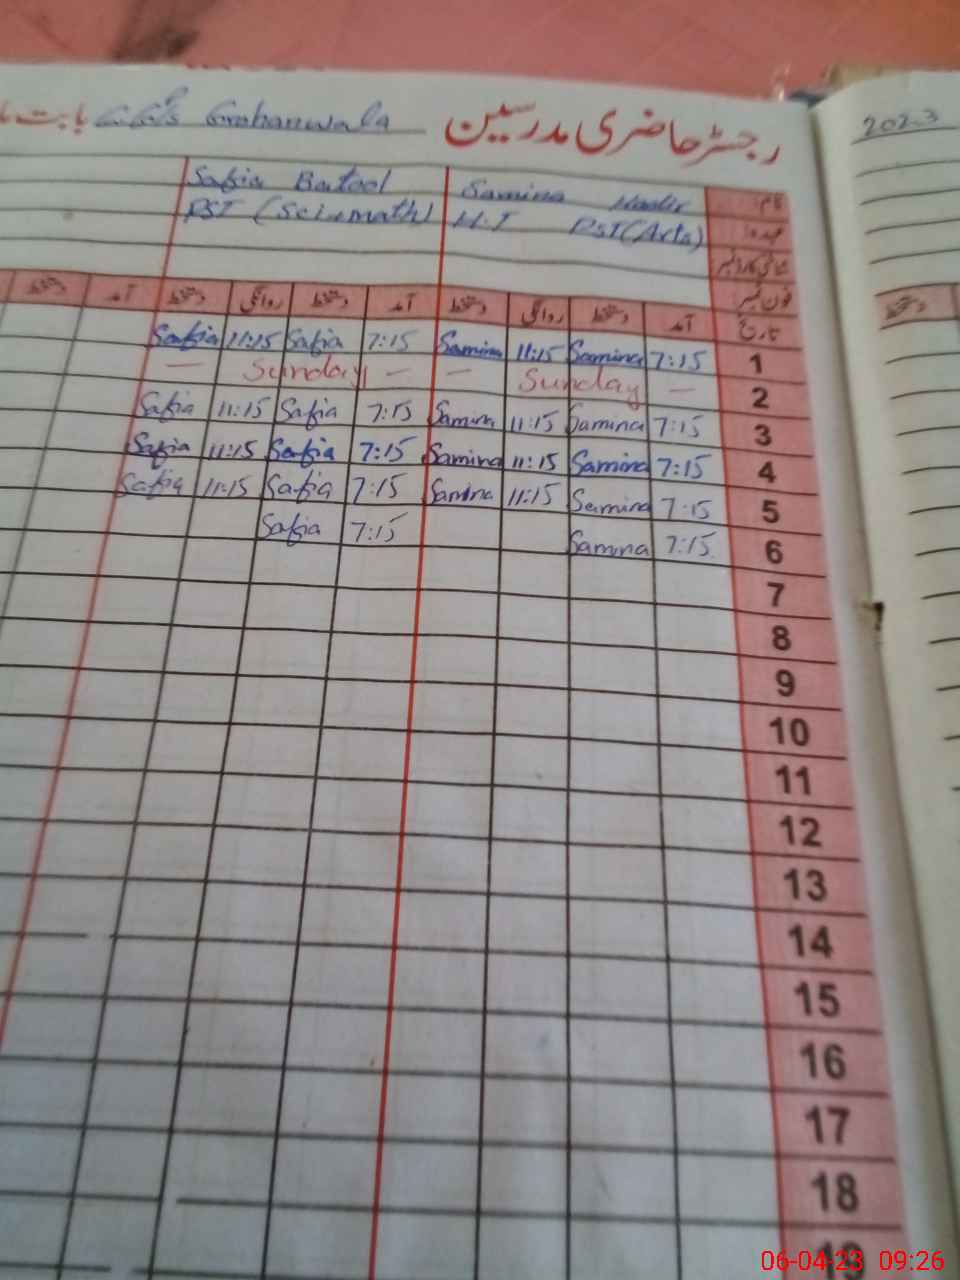 رجسٹر حاضری مدرسین GGPS Grohanwala بابت ما
2023
نام: Samina Nadir Safia Batool
عہدہ: H.T PST(Arts) PST (Sci-math)
شناختی کارڈ نمبر
فون نمبر
تاریخ آمد دستخط روانگی دستخط آمد دستخط روانگی دستخط آمد دستخط
1 7:15 Samina 11:15 Samina 7:15 Safia 11:15 Safia
2 — Sunday — — Sunday —
3 7:15 Samina 11:15 Samina 7:15 Safia 11:15 Safia
4 7:15 Samina 11:15 Samina 7:15 Safia 11:15 Safia
5 7:15 Samina 11:15 Samina 7:15 Safia 11:15 Safia
6 7:15 Samina 7:15 Safia
7
8
9
10
11
12
13
14
15
16
17
18
19
دستخط
06-04-23 09:26